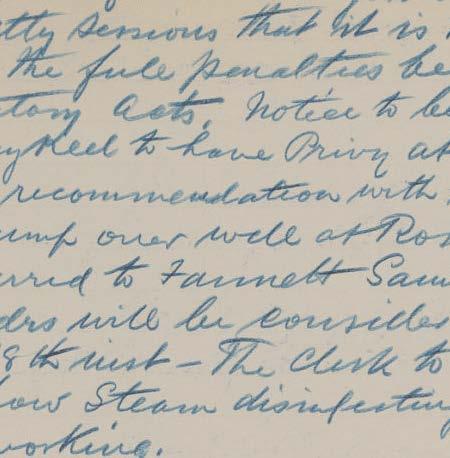 etty Sessions that it is
the full penalties be
ctory Acts, Notice to be
to have Privy at
recommendation with
ump over well at Ros
erred to Fannett San
ders will be consider
8th inst – The Clerk to
low Steam disinfecting
working.